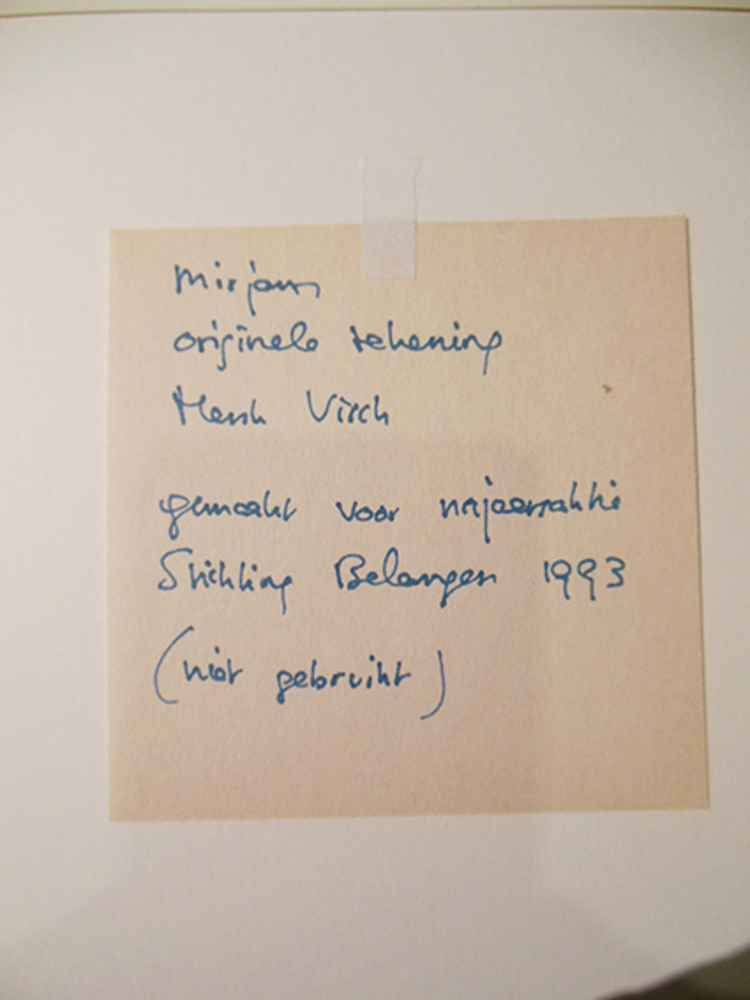 Mirjam
originele tekening
Henk Visch
gemaakt voor najaarsaktie
Stichting Belangen 1993
(niet gebruikt)